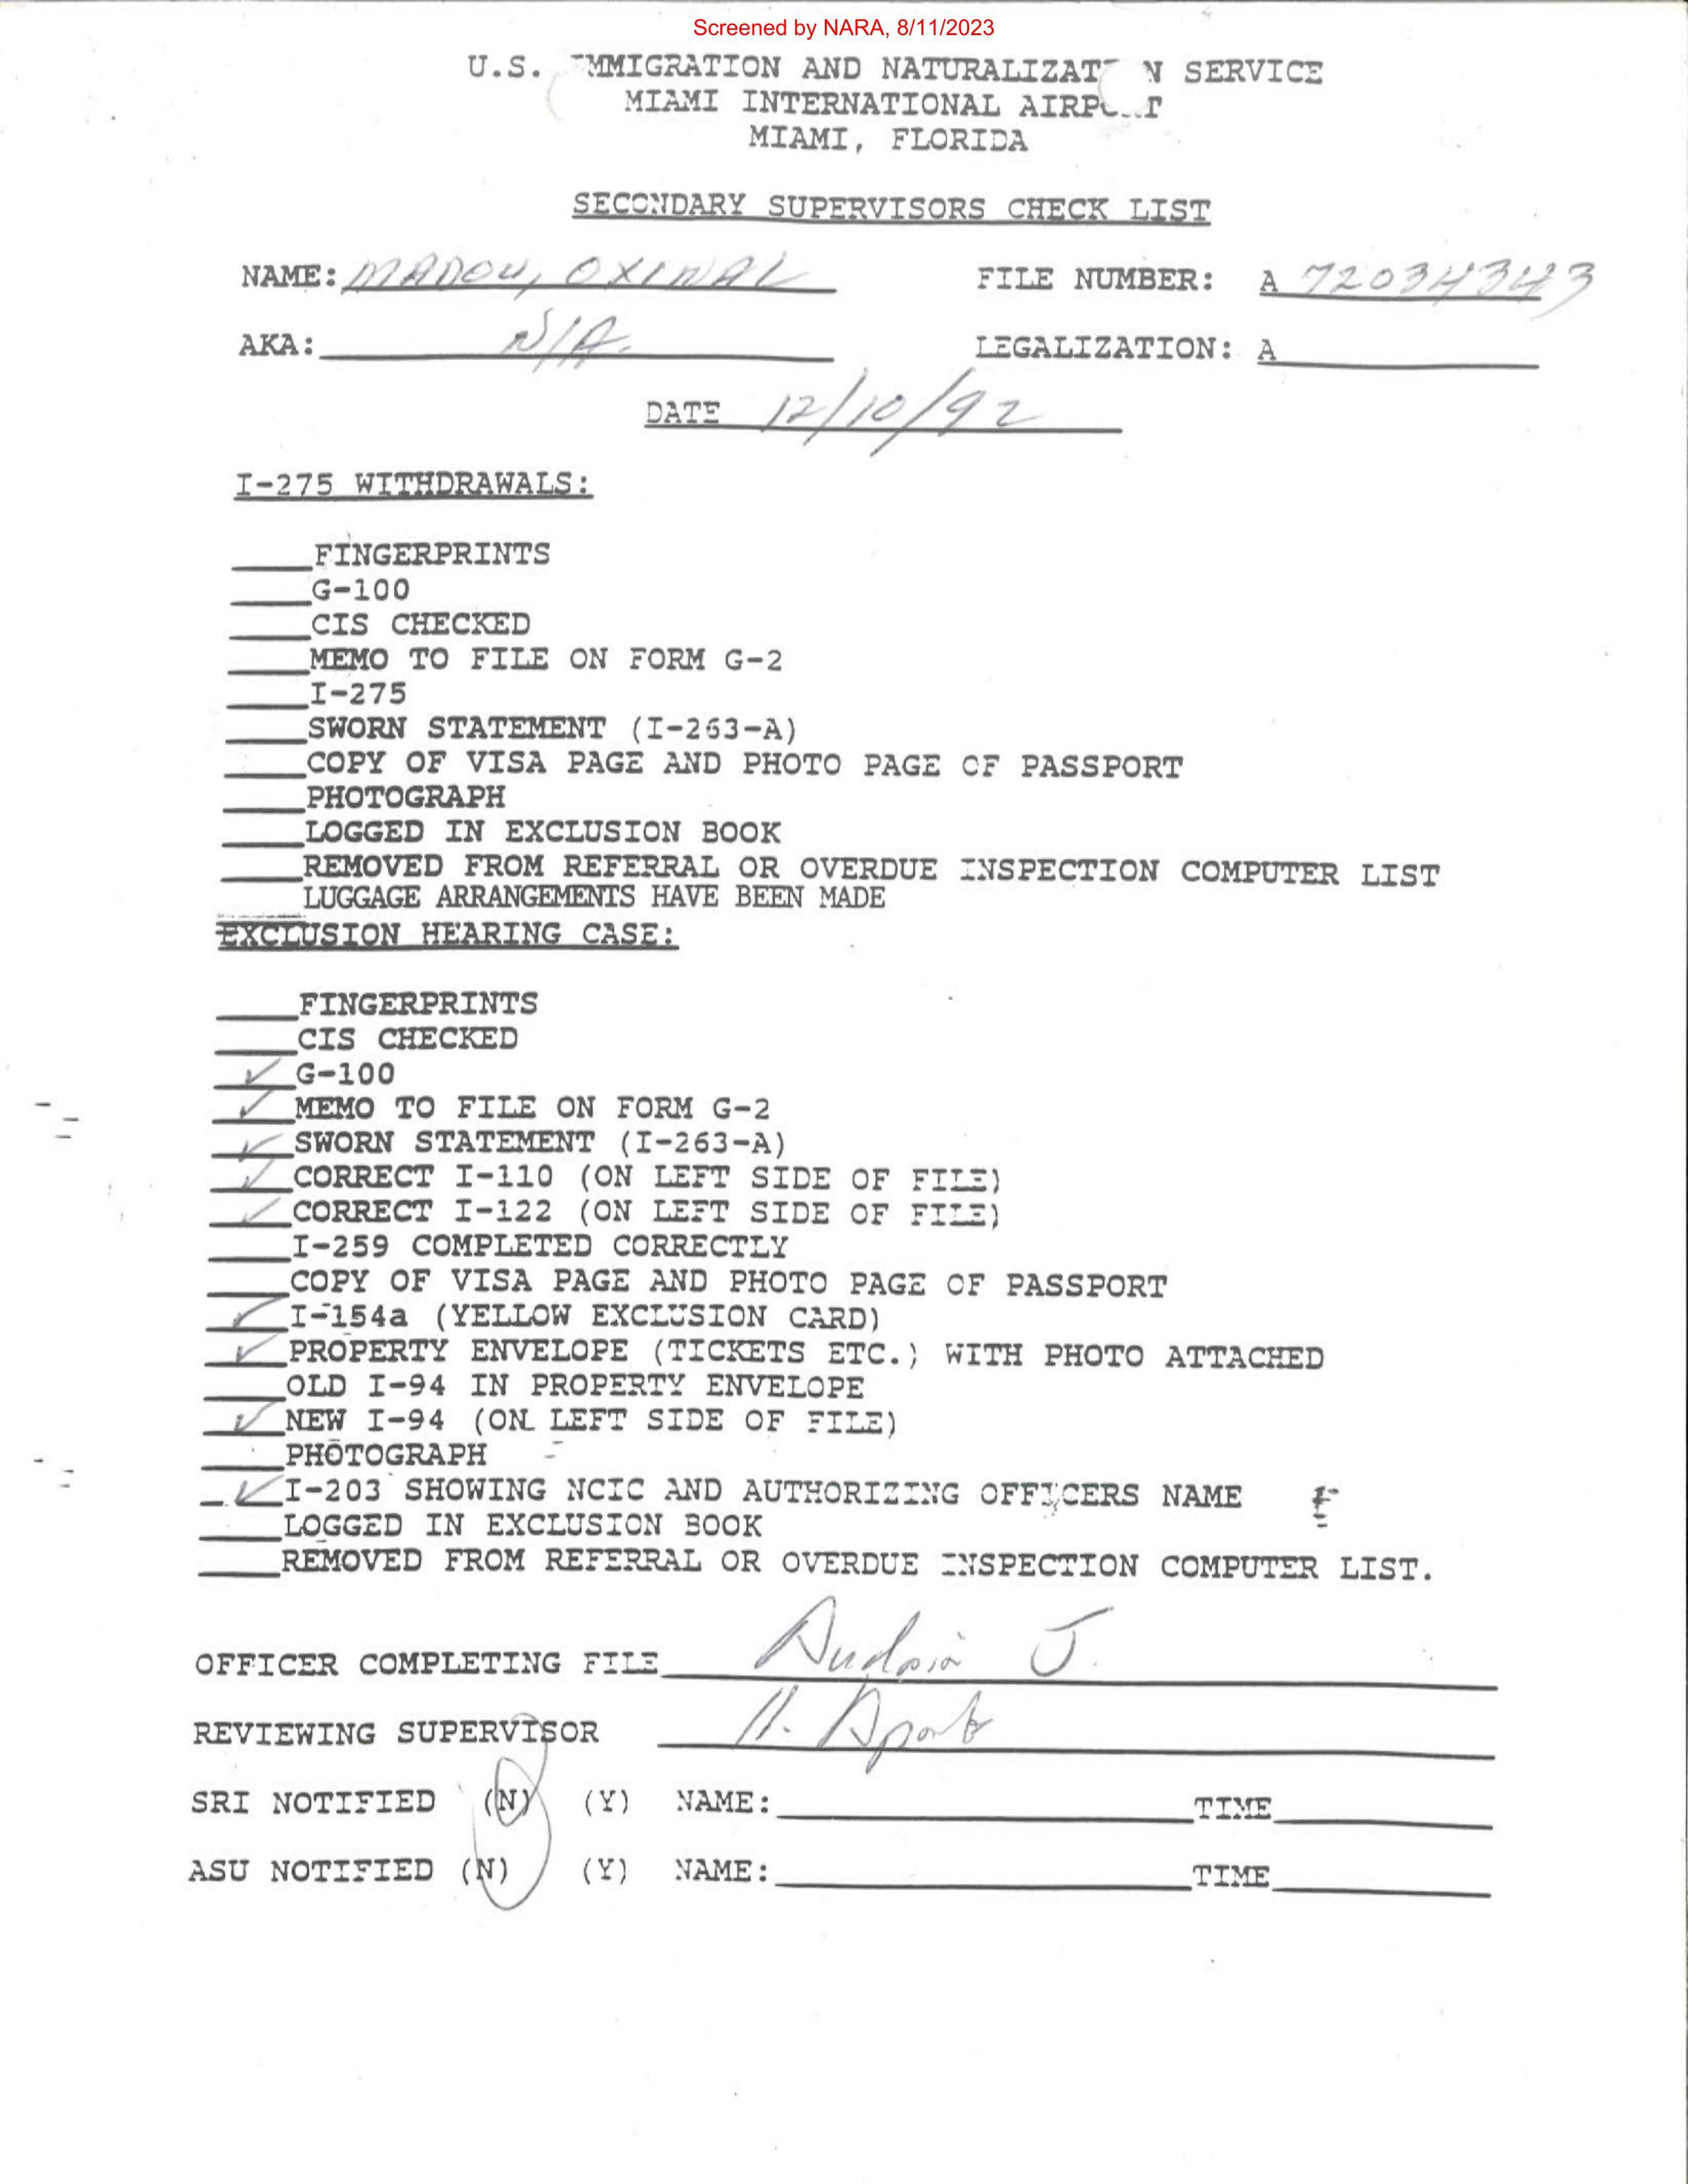 Screened by NARA, 8/11/2023
U.S. IMMIGRATION AND NATURALIZATION SERVICE
MIAMI INTERNATIONAL AIRPORT
MIAMI, FLORIDA
SECONDARY SUPERVISORS CHECK LIST
NAME: MADOU, OXINAL FILE NUMBER: A 72034343
AKA: N/A. LEGALIZATION: A
DATE 12/10/92
I-275 WITHDRAWALS:
FINGERPRINTS
G-100
CIS CHECKED
MEMO TO FILE ON FORM G-2
I-275
SWORN STATEMENT (I-263-A)
COPY OF VISA PAGE AND PHOTO PAGE OF PASSPORT
PHOTOGRAPH
LOGGED IN EXCLUSION BOOK
REMOVED FROM REFERRAL OR OVERDUE INSPECTION COMPUTER LIST
LUGGAGE ARRANGEMENTS HAVE BEEN MADE
EXCLUSION HEARING CASE:
FINGERPRINTS
CIS CHECKED
✓ G-100
✓ MEMO TO FILE ON FORM G-2
✓ SWORN STATEMENT (I-263-A)
✓ CORRECT I-110 (ON LEFT SIDE OF FILE)
✓ CORRECT I-122 (ON LEFT SIDE OF FILE)
I-259 COMPLETED CORRECTLY
COPY OF VISA PAGE AND PHOTO PAGE OF PASSPORT
✓ I-154a (YELLOW EXCLUSION CARD)
✓ PROPERTY ENVELOPE (TICKETS ETC.) WITH PHOTO ATTACHED
OLD I-94 IN PROPERTY ENVELOPE
✓ NEW I-94 (ON LEFT SIDE OF FILE)
PHOTOGRAPH
✓ I-203 SHOWING NCIC AND AUTHORIZING OFFICERS NAME
LOGGED IN EXCLUSION BOOK
REMOVED FROM REFERRAL OR OVERDUE INSPECTION COMPUTER LIST.
OFFICER COMPLETING FILE J.
REVIEWING SUPERVISOR
SRI NOTIFIED (N) (Y) NAME: TIME
ASU NOTIFIED (N) (Y) NAME: TIME